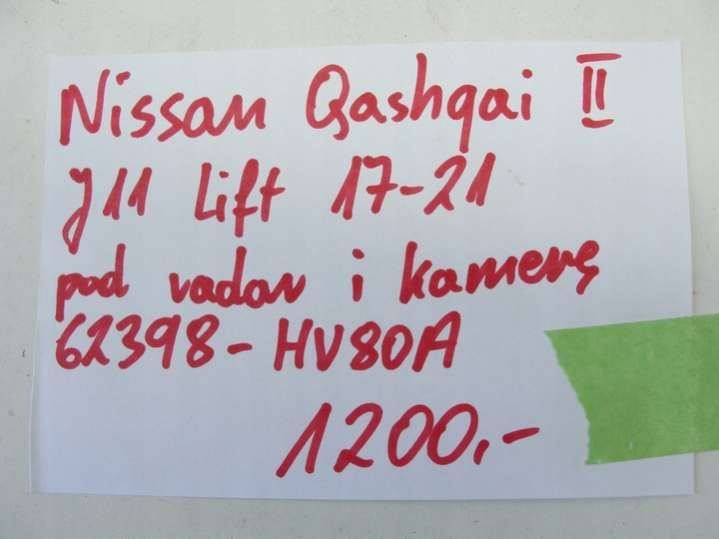 Nissan Qashqai II
J11 Lift 17-21
pod radar i kamerę
62398-HV80A
1200,-